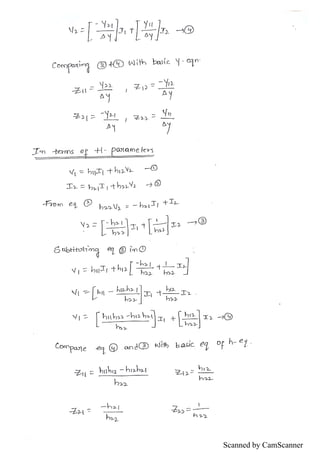 V2 = [-Y21/ΔY] I1 + [Y11/ΔY] I2 → ④
Comparing ③ & ④ with basic Y-eqn
Z11 = Y22/ΔY , Z12 = -Y12/ΔY
Z21 = -Y21/ΔY , Z22 = Y11/ΔY
In terms of H-parameters
V1 = h11I1 + h12V2 —①
I2 = h21I1 + h22V2 → ②
From eq ② h22V2 = -h21I1 + I2
V2 = [-h21/h22] I1 + [1/h22] I2 → ③
Substituting eq ③ in ①
V1 = h11I1 + h12 [-h21/h22 I1 + 1/h22 I2]
V1 = [h11 - h12h21/h22] I1 + h12/h22 I2
V1 = [h11h22 - h12h21/h22] I1 + [h12/h22] I2 → ④
Compare eq ④ and ③ with basic eq of h-eq.
Z11 = h11h12 - h12h21/h22 Z12 = h12/h22
Z21 = -h21/h22 Z22 = 1/h22
Scanned by CamScanner